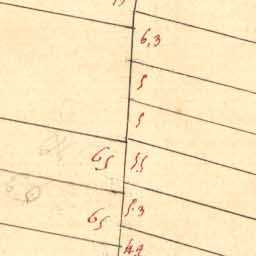 6,3
5
5
65 5,5
65 5.3
4.9